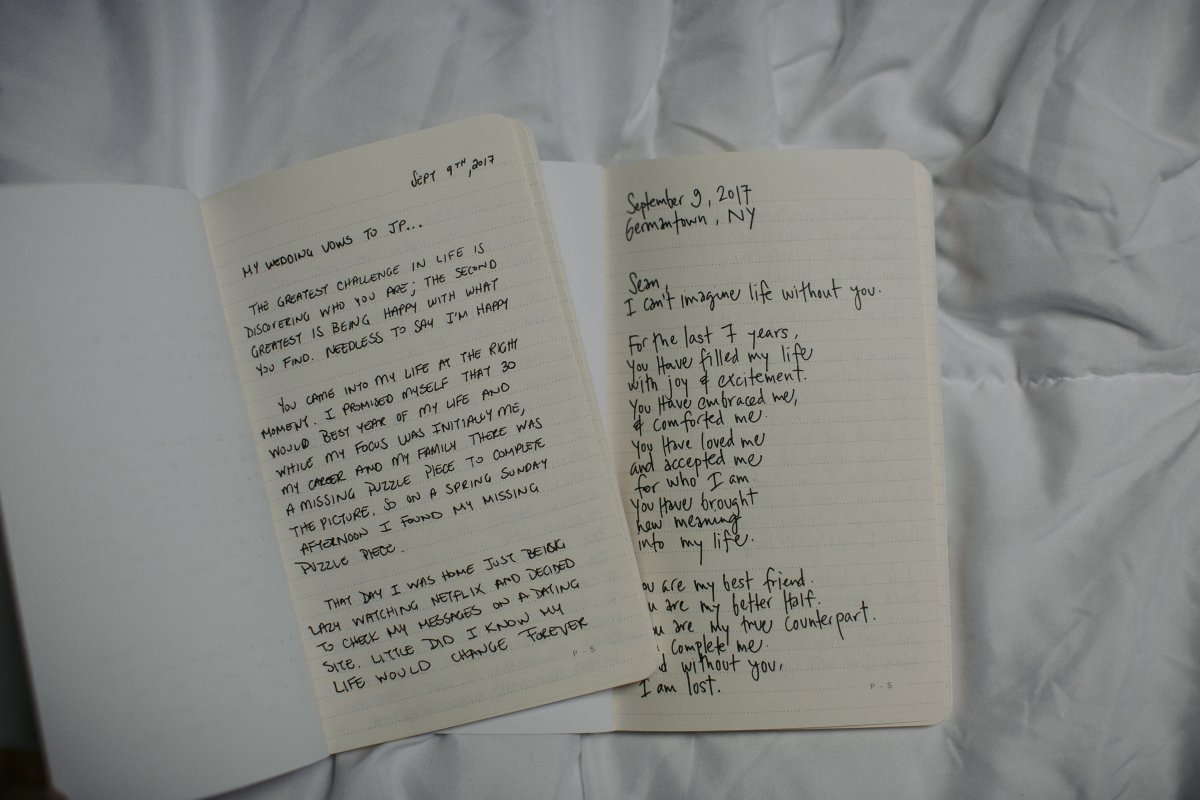 SEPT 9TH, 2017
MY WEDDING VOWS TO JP...
THE GREATEST CHALLENGE IN LIFE IS
DISCOVERING WHO YOU ARE; THE SECOND
GREATEST IS BEING HAPPY WITH WHAT
YOU FIND. NEEDLESS TO SAY I'M HAPPY
YOU CAME INTO MY LIFE AT THE RIGHT
MOMENT. I PROMISED MYSELF THAT 30
WOULD BEST YEAR OF MY LIFE AND
WHILE MY FOCUS WAS INITIALLY ME,
MY CAREER AND MY FAMILY THERE WAS
A MISSING PUZZLE PIECE TO COMPLETE
THE PICTURE. SO ON A SPRING SUNDAY
AFTERNOON I FOUND MY MISSING
PUZZLE PIECE.
THAT DAY I WAS HOME JUST BEING
LAZY WATCHING NETFLIX AND DECIDED
TO CHECK MY MESSAGES ON A DATING
SITE. LITTLE DID I KNOW MY
LIFE WOULD CHANGE FOREVER
P-S
September 9, 2017
Germantown, NY
Sean,
I can't imagine life without you.
For the last 7 years,
you have filled my life
with joy & excitement.
You have embraced me,
& comforted me.
You have loved me
and accepted me
for who I am.
You have brought
new meaning
into my life.
ou are my best friend.
u are my better half.
ou are my true counterpart.
complete me.
d without you,
I am lost.
P-S